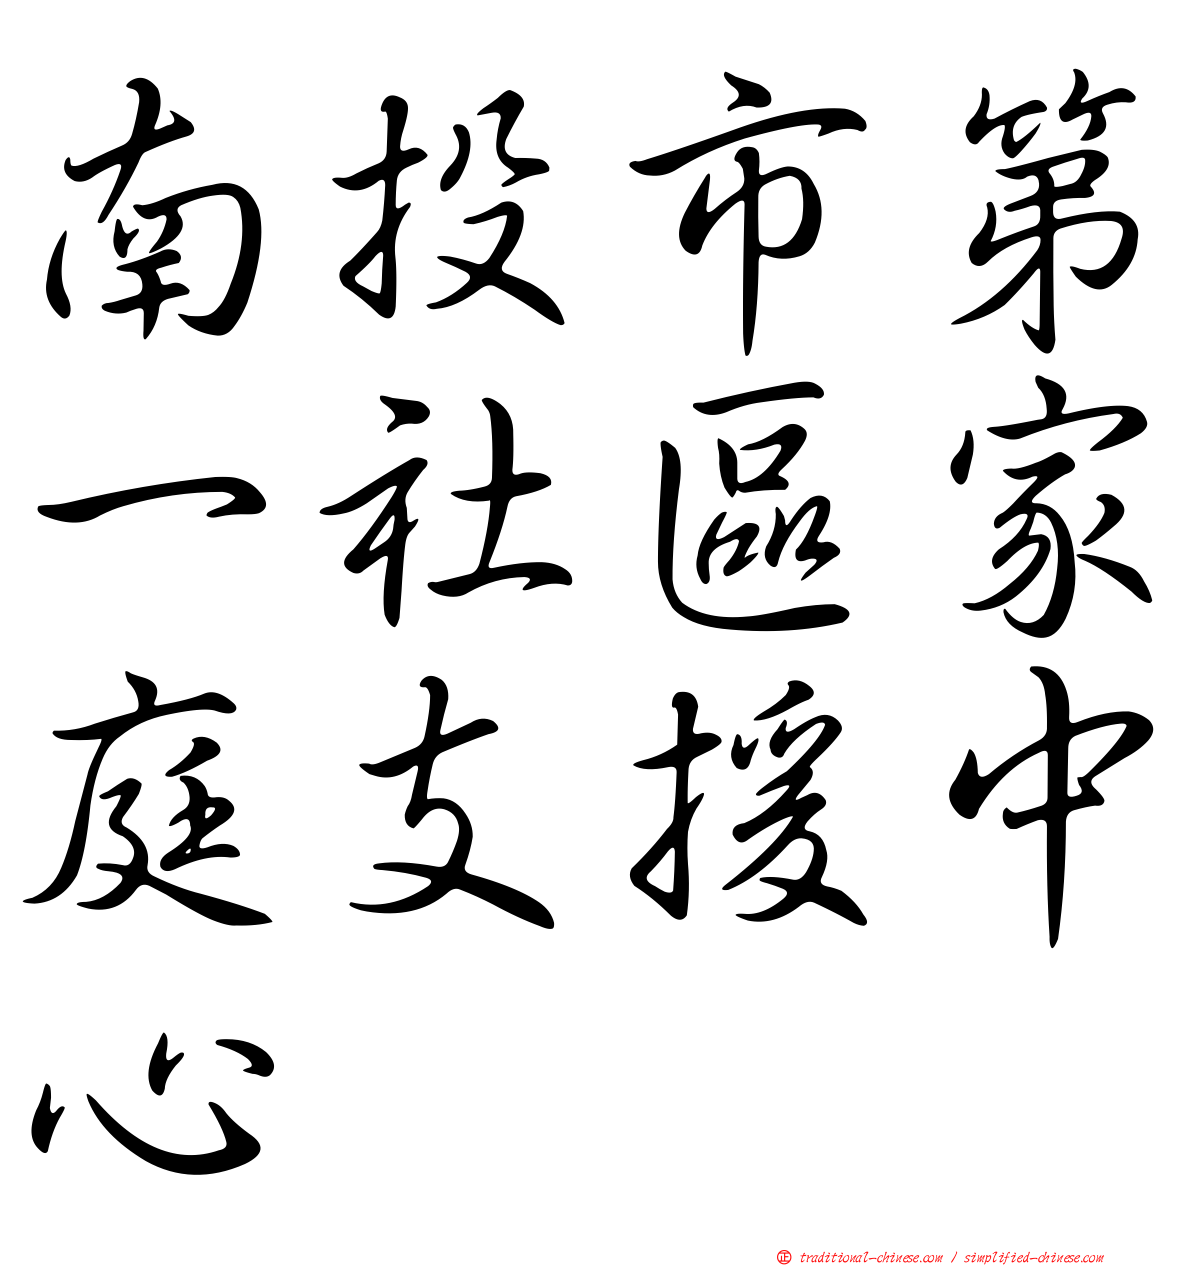 南投市第
一社區家
庭支援中
心
正 traditional-chinese.com / simplified-chinese.com